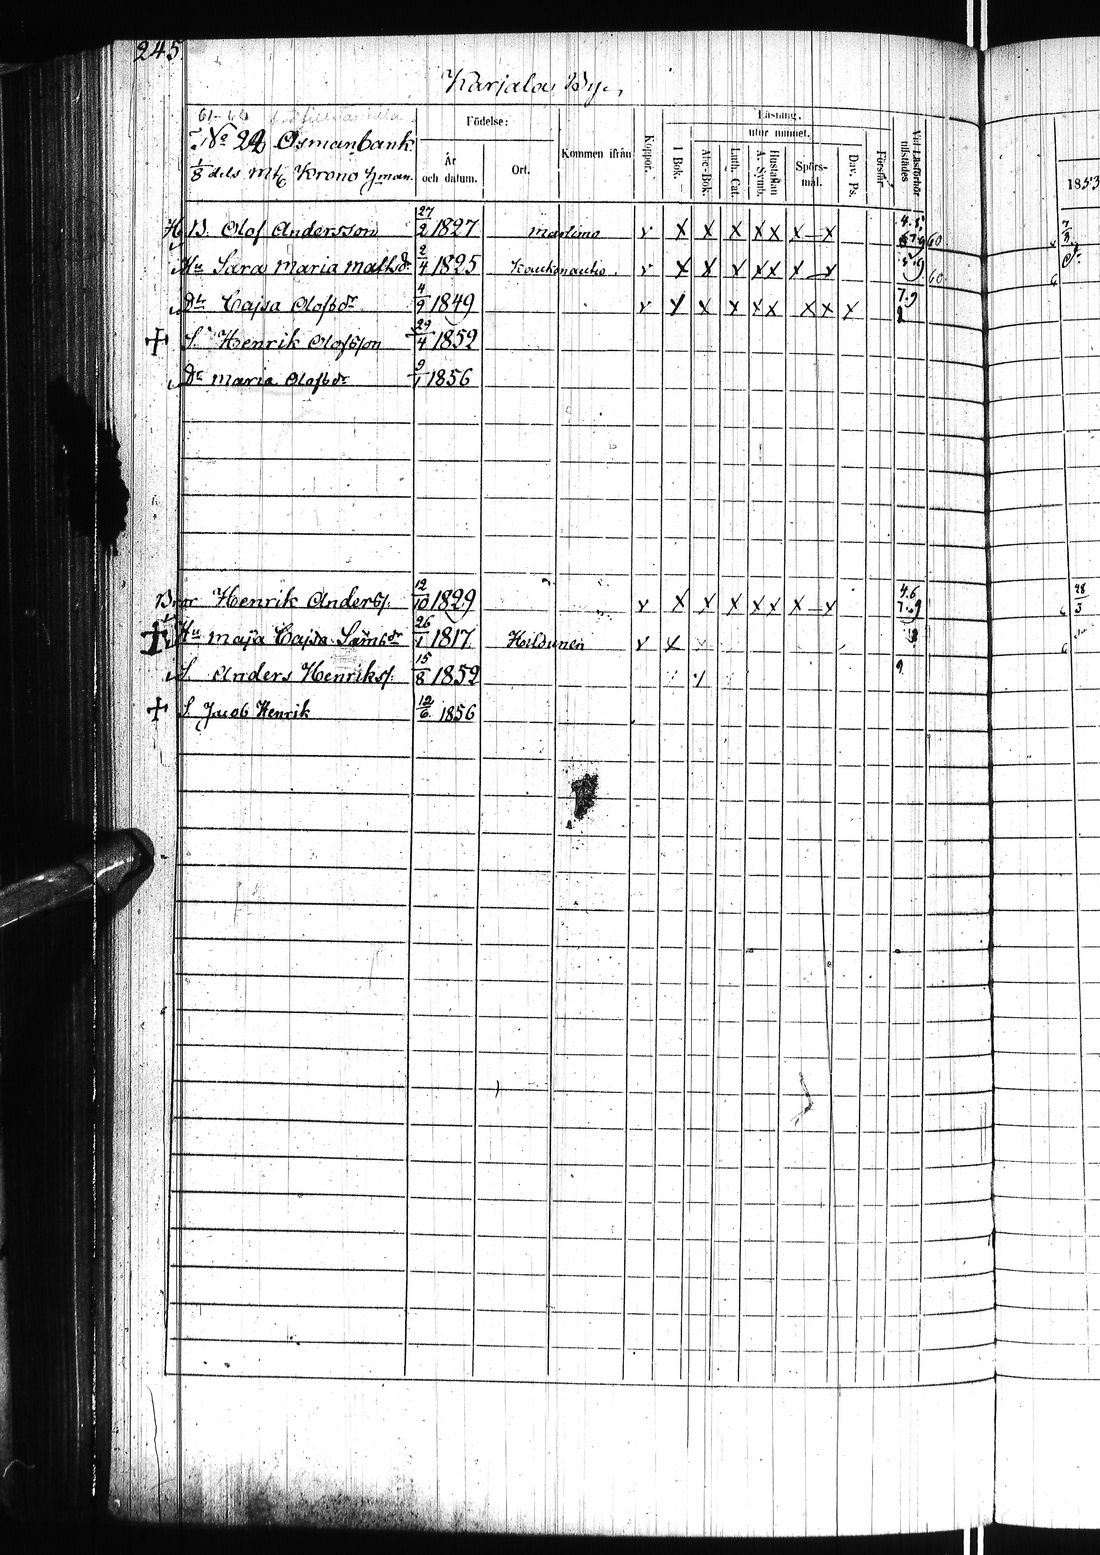 245
Karjalan By.
61-64
No 24 Osmanbank
1/8 dels mtl Krono Hman.
Födelse:
År och datum.
Ort.
Kommen ifrån
Koppor.
Läsning.
utur minnet.
I Bok.
Abc-Bok.
Luth. Cat.
Hustaflan A. Symb.
Spörs-mål.
Dav. Ps.
Förstår
Vid Läsförhör tillstädes
1853
H B. Olof Andersson 27/2 1827 Martimo v X X X X X X—X 60 7/8
Hu Sara Maria Mattsdr 2/4 1825 v X X X X X X—X 60
Dr Cajsa Olofsdr 4/9 1849 v X X X X X X X X 7.9
S. Henrik Olofsson 29/4 1852
Dr Maria Olofsdr 9/1 1856
Bror Henrik Anders. 12/10 1829 v X X X X X X—X 4.6 7.9 28/3
Hu Maja Cajsa Samsdr 26/1 1817 v X
S. Anders Henriks. 15/8 1852 9
S Jacob Henrik 12/6 1856